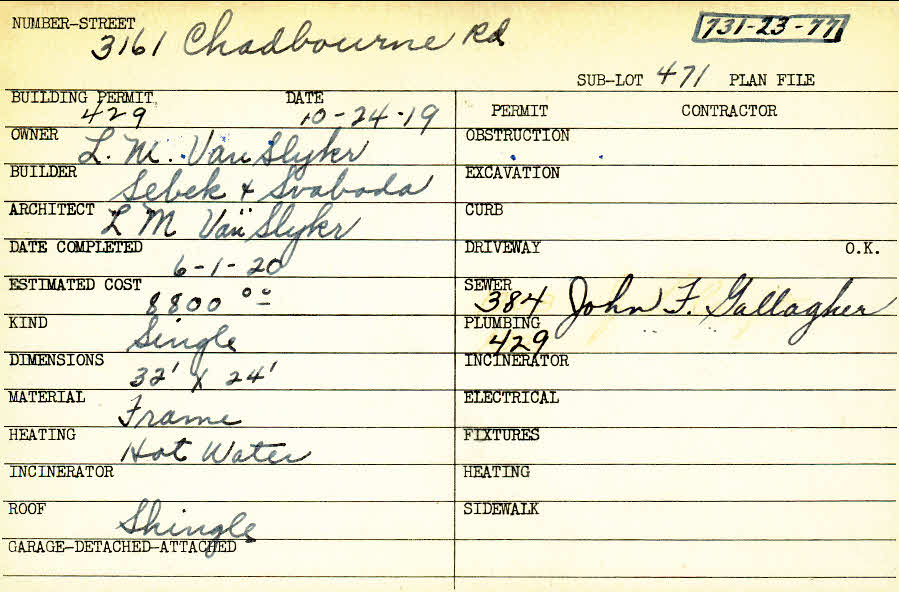 NUMBER-STREET
3161 Chadbourne Rd
731-23-77
SUB-LOT 471 PLAN FILE
BUILDING PERMIT DATE
429 10-24-19
OWNER L. M. Van Slykr
BUILDER Sebek & Svaboda
ARCHITECT L M Van Slykr
DATE COMPLETED
6-1-20
ESTIMATED COST
8800 00
KIND
Single
DIMENSIONS
32' x 24'
MATERIAL
Frame
HEATING
Hot Water
INCINERATOR
ROOF
Shingle
GARAGE-DETACHED-ATTACHED
PERMIT CONTRACTOR
OBSTRUCTION
EXCAVATION
CURB
DRIVEWAY O.K.
SEWER
384 John F. Gallagher
PLUMBING
429
INCINERATOR
ELECTRICAL
FIXTURES
HEATING
SIDEWALK